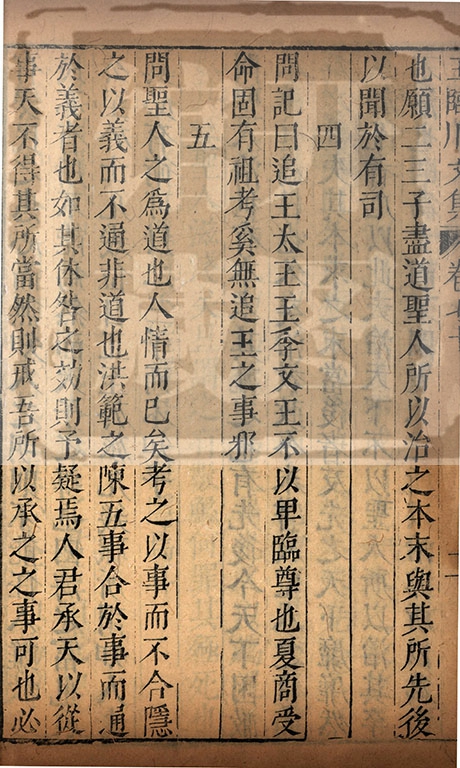 王臨川文集 卷七十
也願二三子盡道聖人所以治之本末與其所先後
以聞於有司
四
問記曰追王太王王季文王不以卑臨尊也夏商受
命固有祖考奚無追王之事邪
五
問聖人之爲道也人情而已矣考之以事而不合隱
之以義而不通非道也洪範之陳五事合於事而通
於義者也如其休咎之效則予疑焉人君承天以從
事天不得其所當然則戒吾所以承之之事可也必